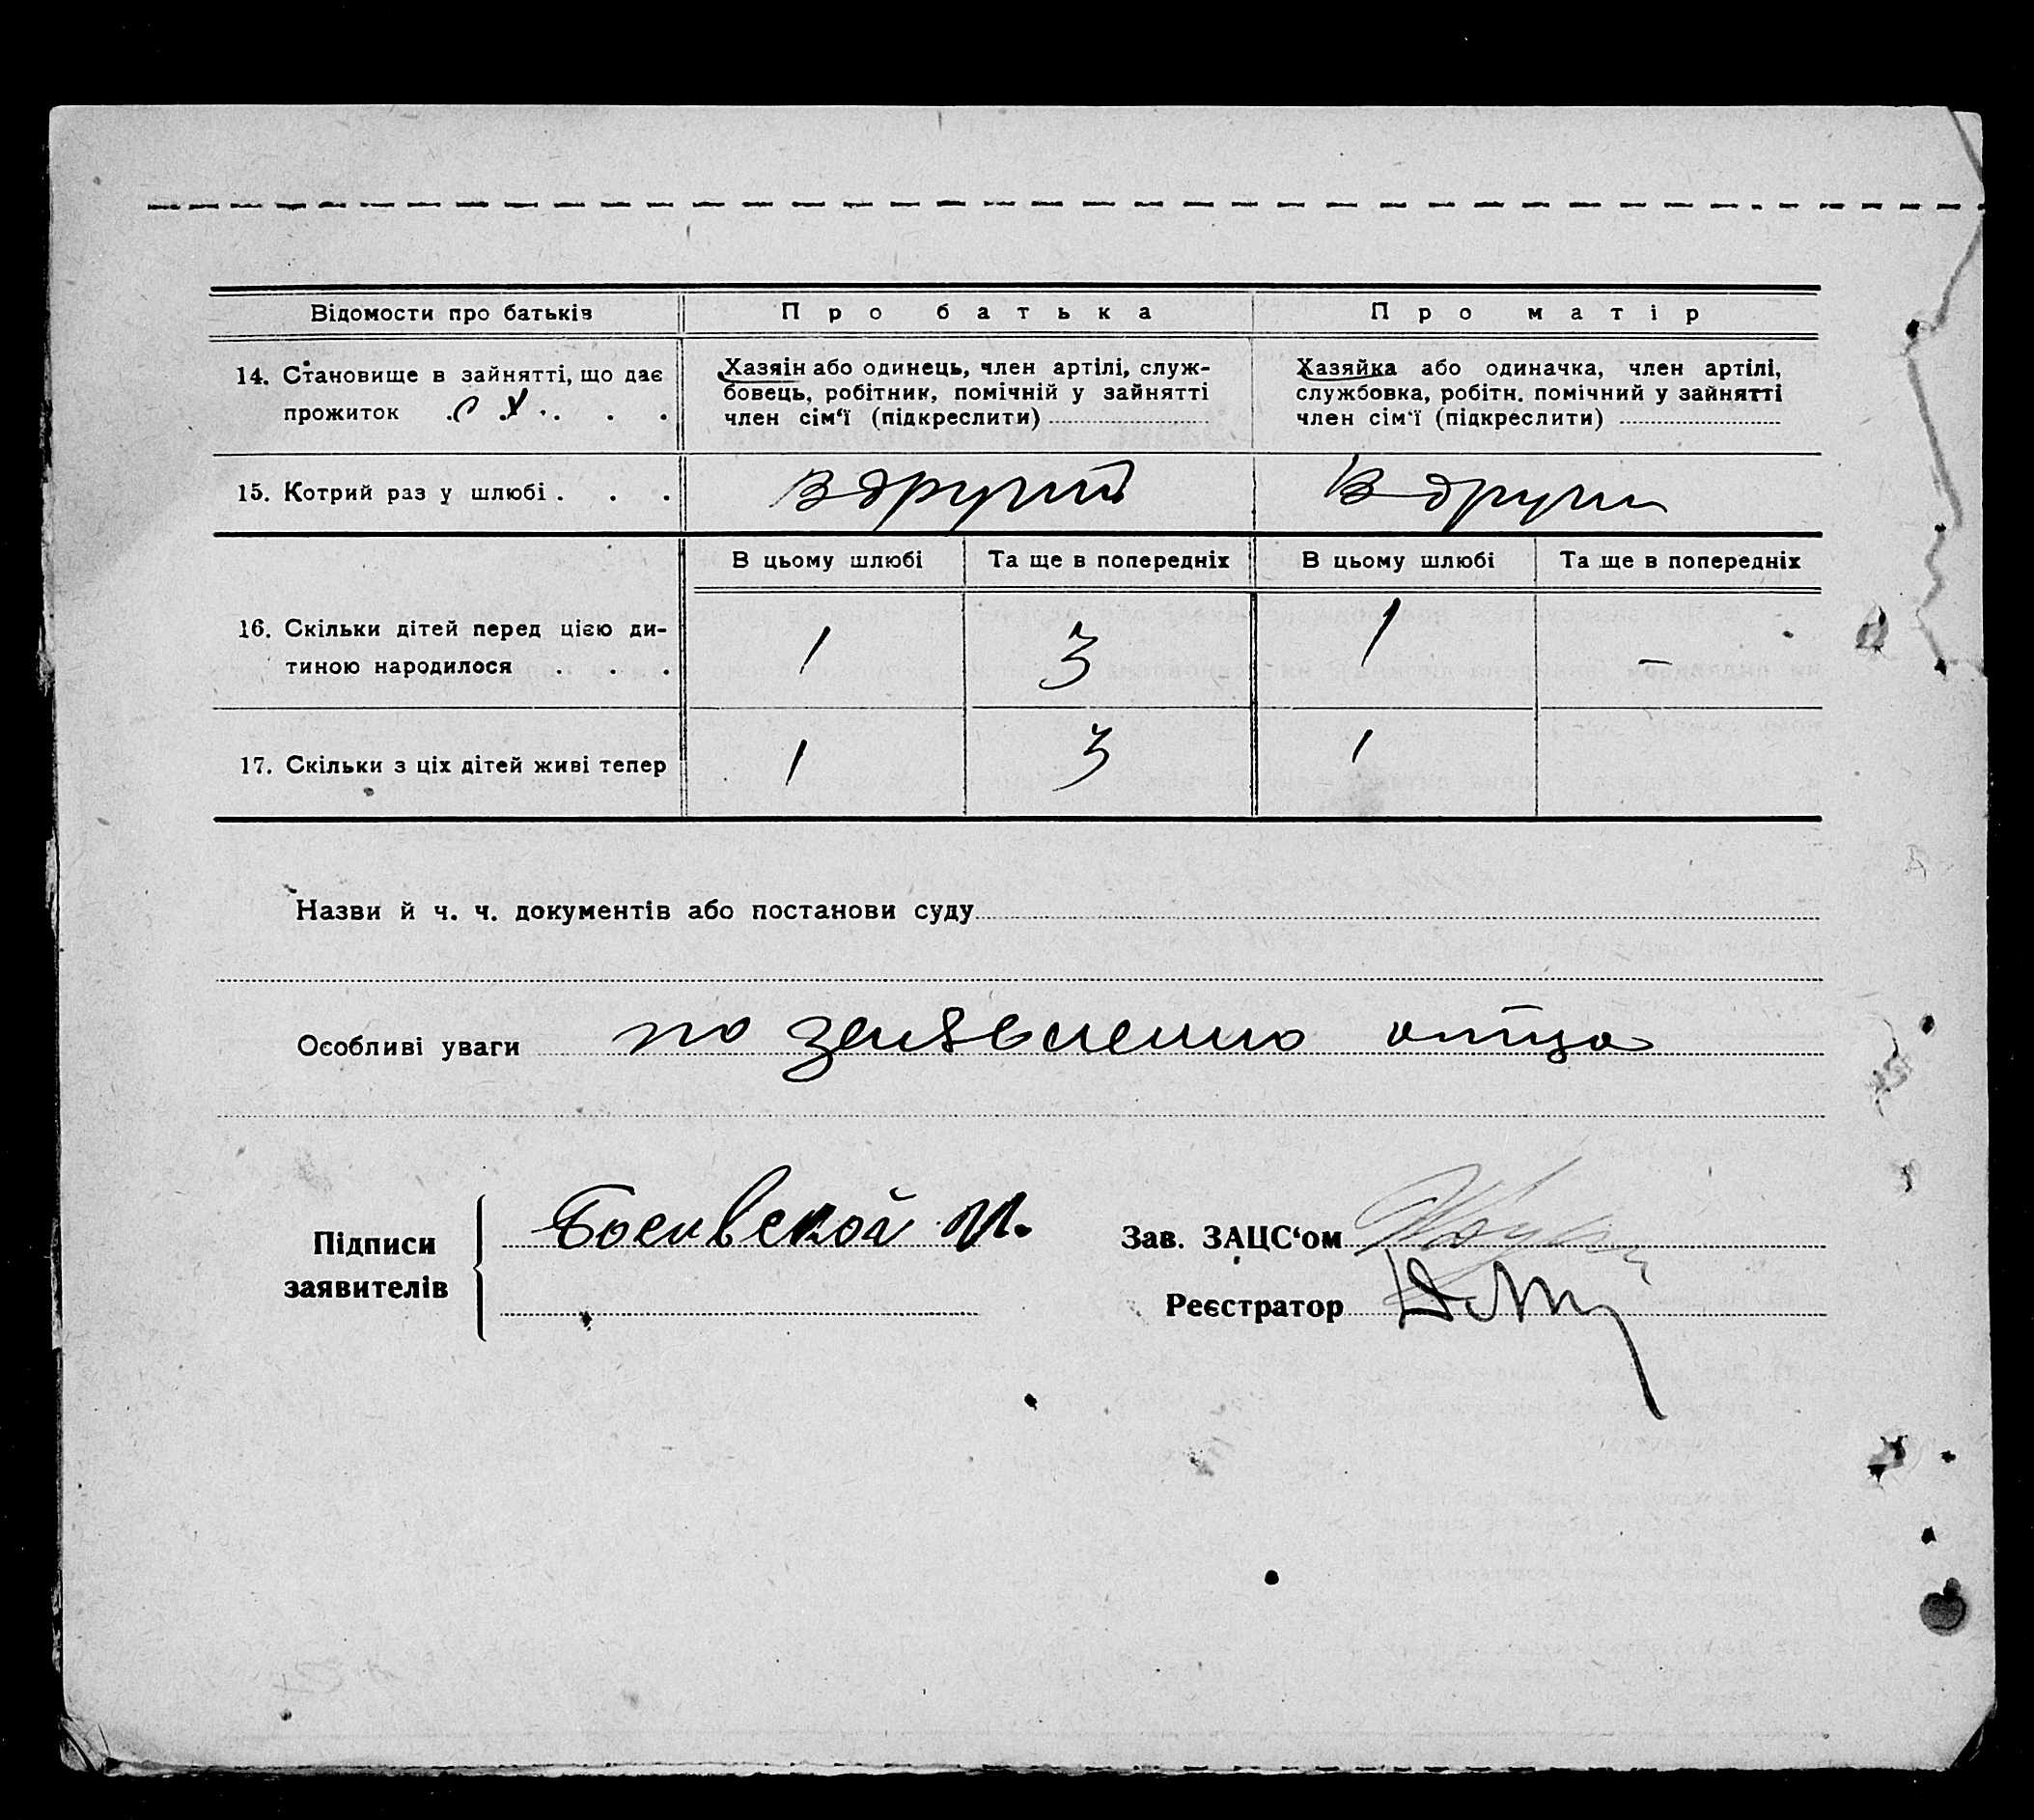 Відомости про батьків
Про батька
Про матір
14. Становище в зайнятті, що дає
прожиток . с х . . . .
Хазяін або одинець, член артілі, служ-
бовець, робітник, помічній у зайнятті
член сім‘ї (підкреслити)
Хазяйка або одиначка, член артілі,
службовка, робітн. помічний у зайнятті
член сім‘ї (підкреслити)
15. Котрий раз у шлюбі . . .
В другий
В други
В цьому шлюбі
Та ще в попередніх
В цьому шлюбі
Та ще в попередніх
16. Скільки дітей перед цією ди-
тиною народилося . . .
1
3
1
–
17. Скільки з ціх дітей живі тепер
1
3
1
Назви й ч. ч. документів або постанови суду
Особливі уваги по заявлению отца
Підписи
заявителів
Зав. ЗАЦС‘ом
Реєстратор